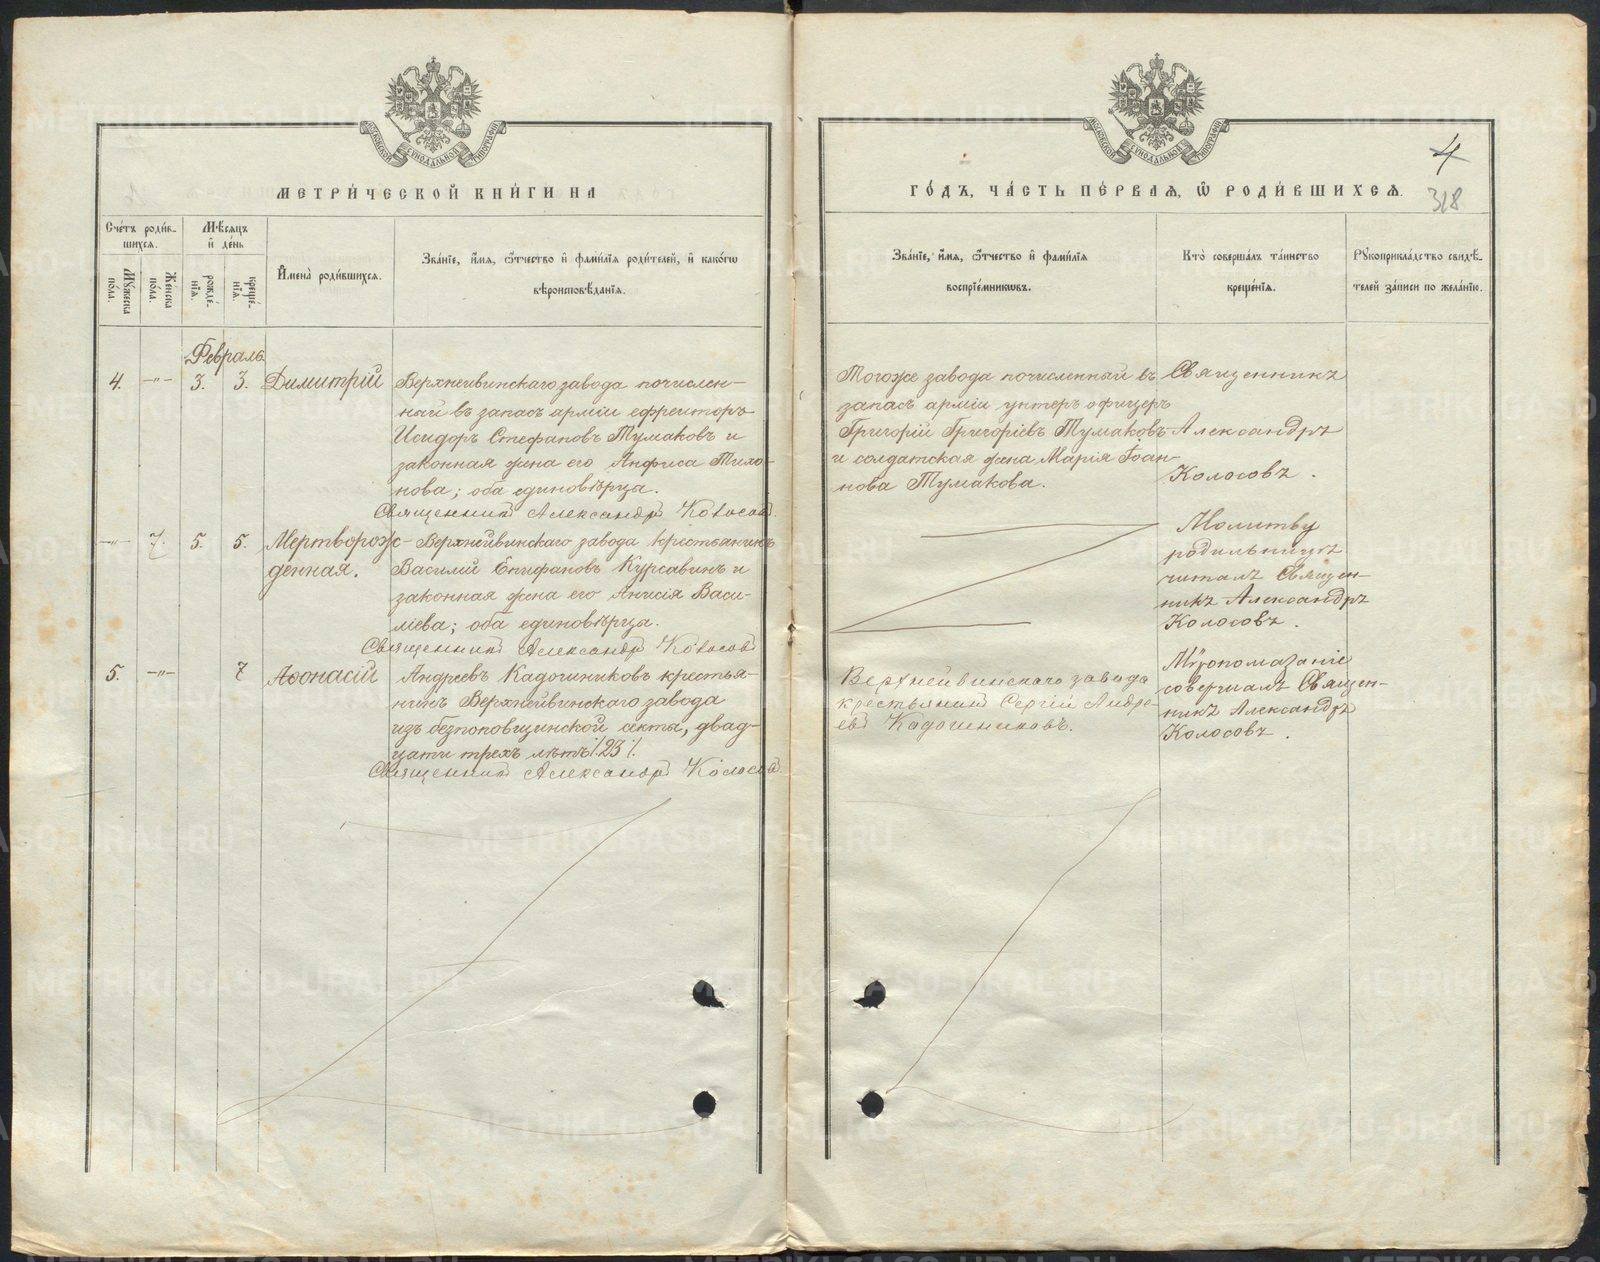 МЕТРИ́ЧЕСКОЙ КНИ́ГИ НА
Сче́тъ роди́в-
шихся.
Мѣ́сяцъ
и҆ де́нь
Мꙋжеска
по́ла.
Же́нска
по́ла.
рожде́-
нїѧ.
креще́-
нїѧ.
И҆мена̀ роди́вшихсѧ.
Зва́нїе, и҆́мѧ, ѻ҆́тчество и҆ фамі́лїѧ роди́телей, и҆ како́гѡ
вѣроисповѣ́данїѧ.
Февраль
4. —"— 3. 3. Димитрій
Верхнейвинскаго завода почислен-
ный въ запасъ арміи ефрейторъ
Исидоръ Стефановъ Тумаковъ и
законная жена его Анфиса Тихо-
нова; оба единовѣрца.
Священникъ Александръ Колосовъ.
—"— 7. 5. 5. Мертворож-
денная.
Верхнейвинскаго завода крестьянинъ
Василій Епифановъ Курсавинъ и
законная жена его Анисія Васи-
ліева; оба единовѣрца.
Священникъ Александръ Колосовъ
5. —"— 7 Аѳонасій
Андреевъ Кадочниковъ крестья-
нинъ Верхнейвинскаго завода
изъ безпоповщинской секты, двад-
цати трехъ лѣтъ /.23./.
Священникъ Александръ Колосовъ.
ГО́ДЪ, ЧА́СТЬ ПЕ́РВАЯ, Ѡ҆ РОДИ́ВШИХСЯ.
4
318
Зва́нїе, и҆́мѧ, ѻ҆́тчество и҆ фамі́лїѧ
воспрїе́мникѡвъ.
Кто̀ соверша́лъ та́инство
креще́нїѧ.
Рꙋкоприкла́дство свидѣ́-
телей за́писи по жела́нїю.
Тогоже завода почисленный въ
запасъ арміи унтеръ офицеръ
Григорій Григоріевъ Тумаковъ
и солдатская жена Марія Іоан-
нова Тумакова.
Священникъ
Александръ
Колосовъ.
Молитву
родильницѣ
читалъ Священ-
никъ Александръ
Колосовъ.
Верхнейвинскаго завода
крестьянинъ Сергій Андре-
евъ Кадочниковъ.
Мѵропомазаніе
совершалъ Священ-
никъ Александръ
Колосовъ.
METRIKI.GASO-URAL.RU